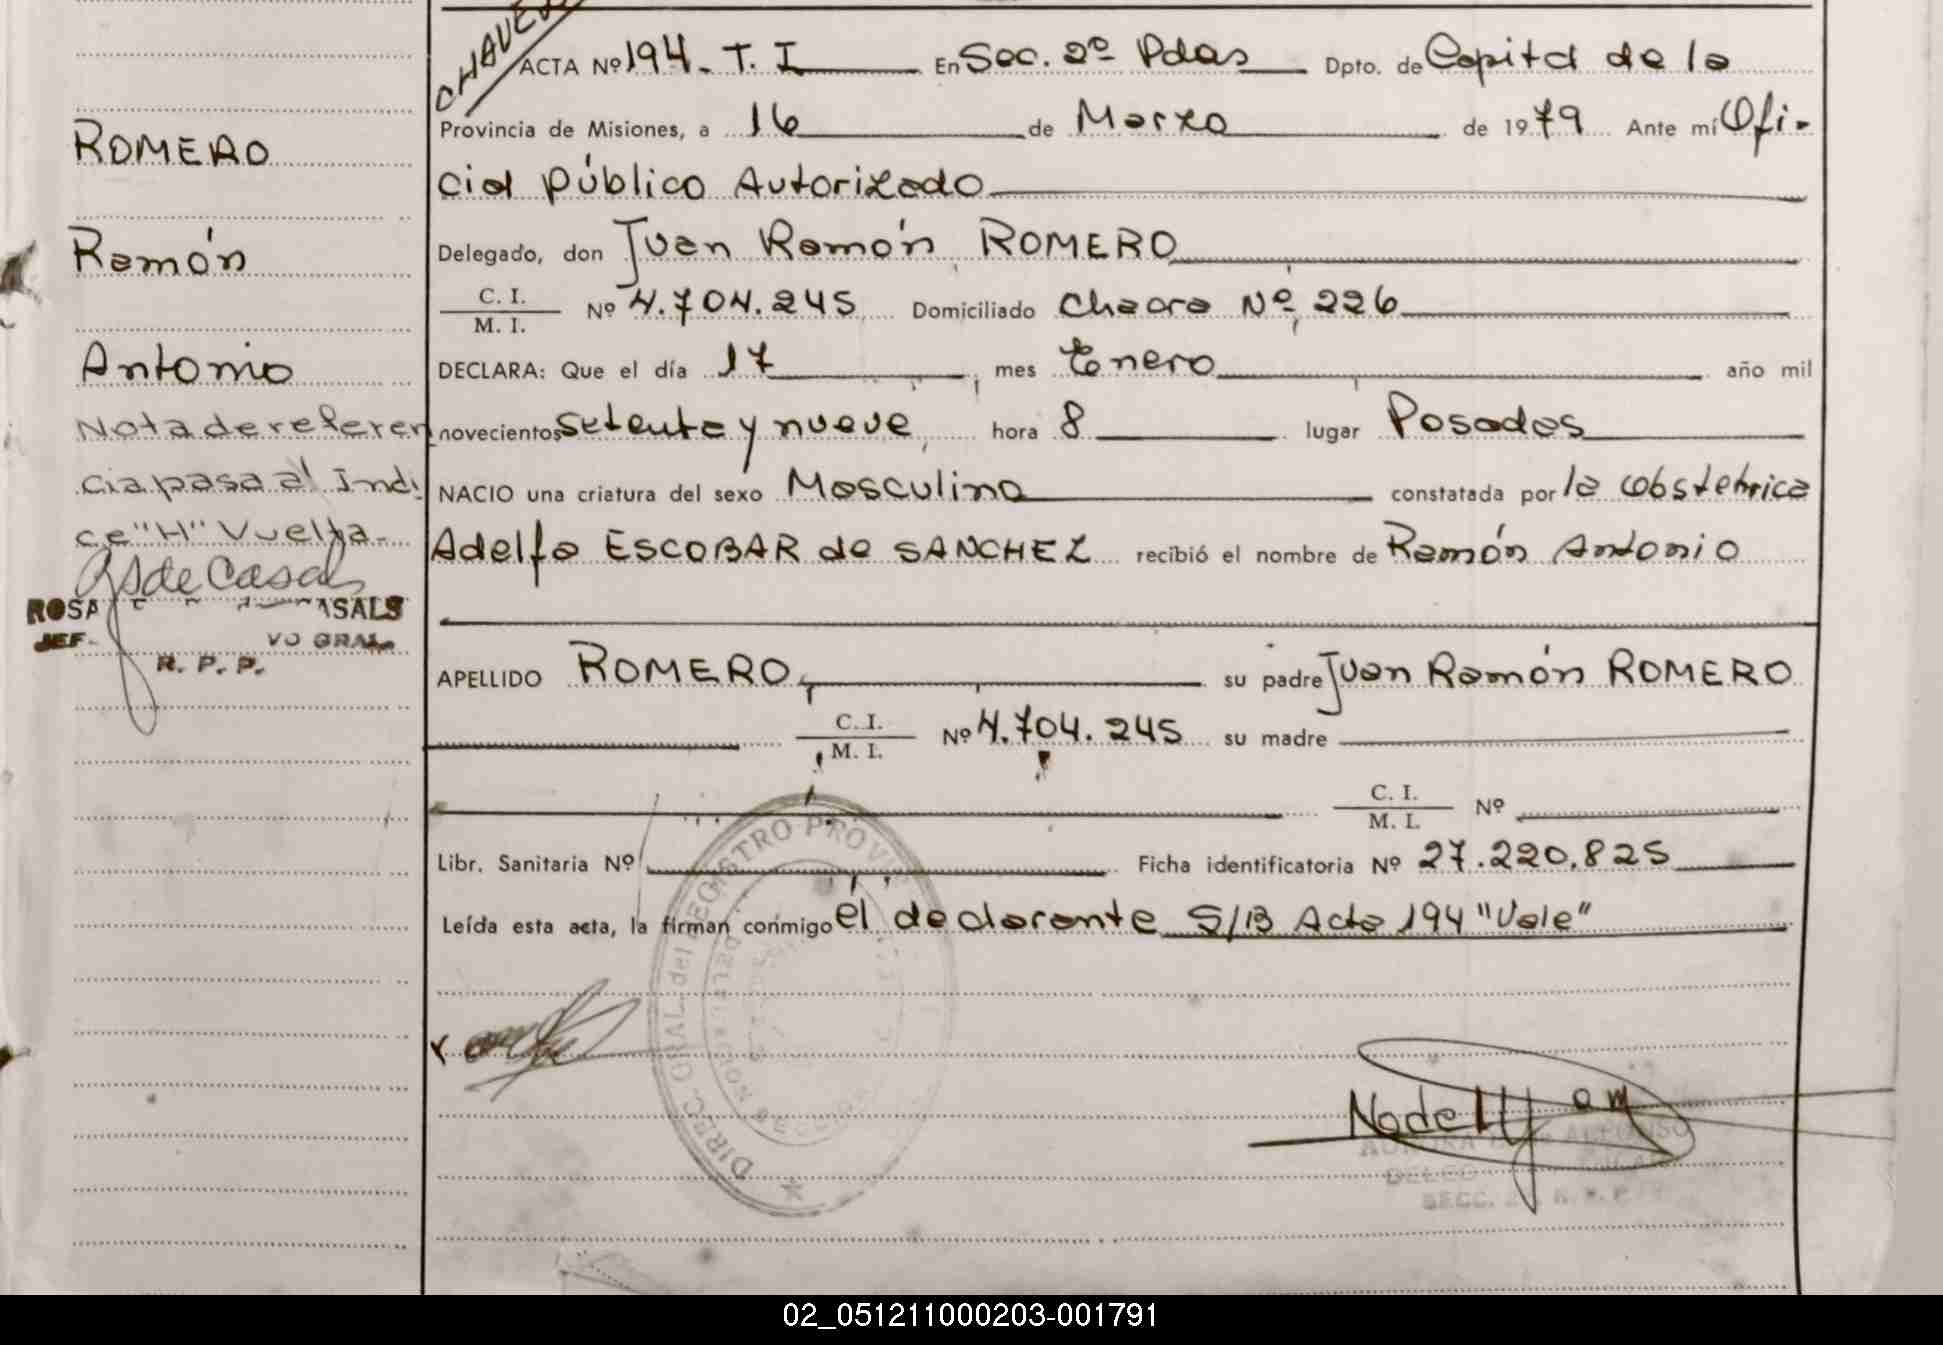 CHAVEZ
ACTA Nº 194. T. I En Sec. 2º Pdas Dpto. de Capital de la
Provincia de Misiones, a 16 de Marzo de 1979 Ante mí Ofi-
cial Público Autorizado
Delegado, don Juan Ramón ROMERO
C. I.
M. I. Nº 4.704.245 Domiciliado Chacra Nº 226
DECLARA: Que el día 17 mes Enero año mil
novecientos setenta y nueve hora 8 lugar Posadas
NACIO una criatura del sexo Masculino constatada por la Obstetrica
Adelfa ESCOBAR de SANCHEZ recibió el nombre de Ramón Antonio
APELLIDO ROMERO su padre Juan Ramón ROMERO
C. I.
M. I. Nº 4.704.245 su madre
C. I.
M. I. Nº
Libr. Sanitaria Nº Ficha identificatoria Nº 27.220.825
Leída esta acta, la firman conmigo él declarante S/B Acta 194 "Vale"
ROMERO
Ramón
Antonio
Nota de referen
cia pasa al Indi
ce "H" Vuelta-
ROSA ASALS
JEF- VO GRAL.
R. P. P.
DIREC. GRAL del REGISTRO PROV
ALFONSO
SECC. R. P. P.
02_051211000203-001791